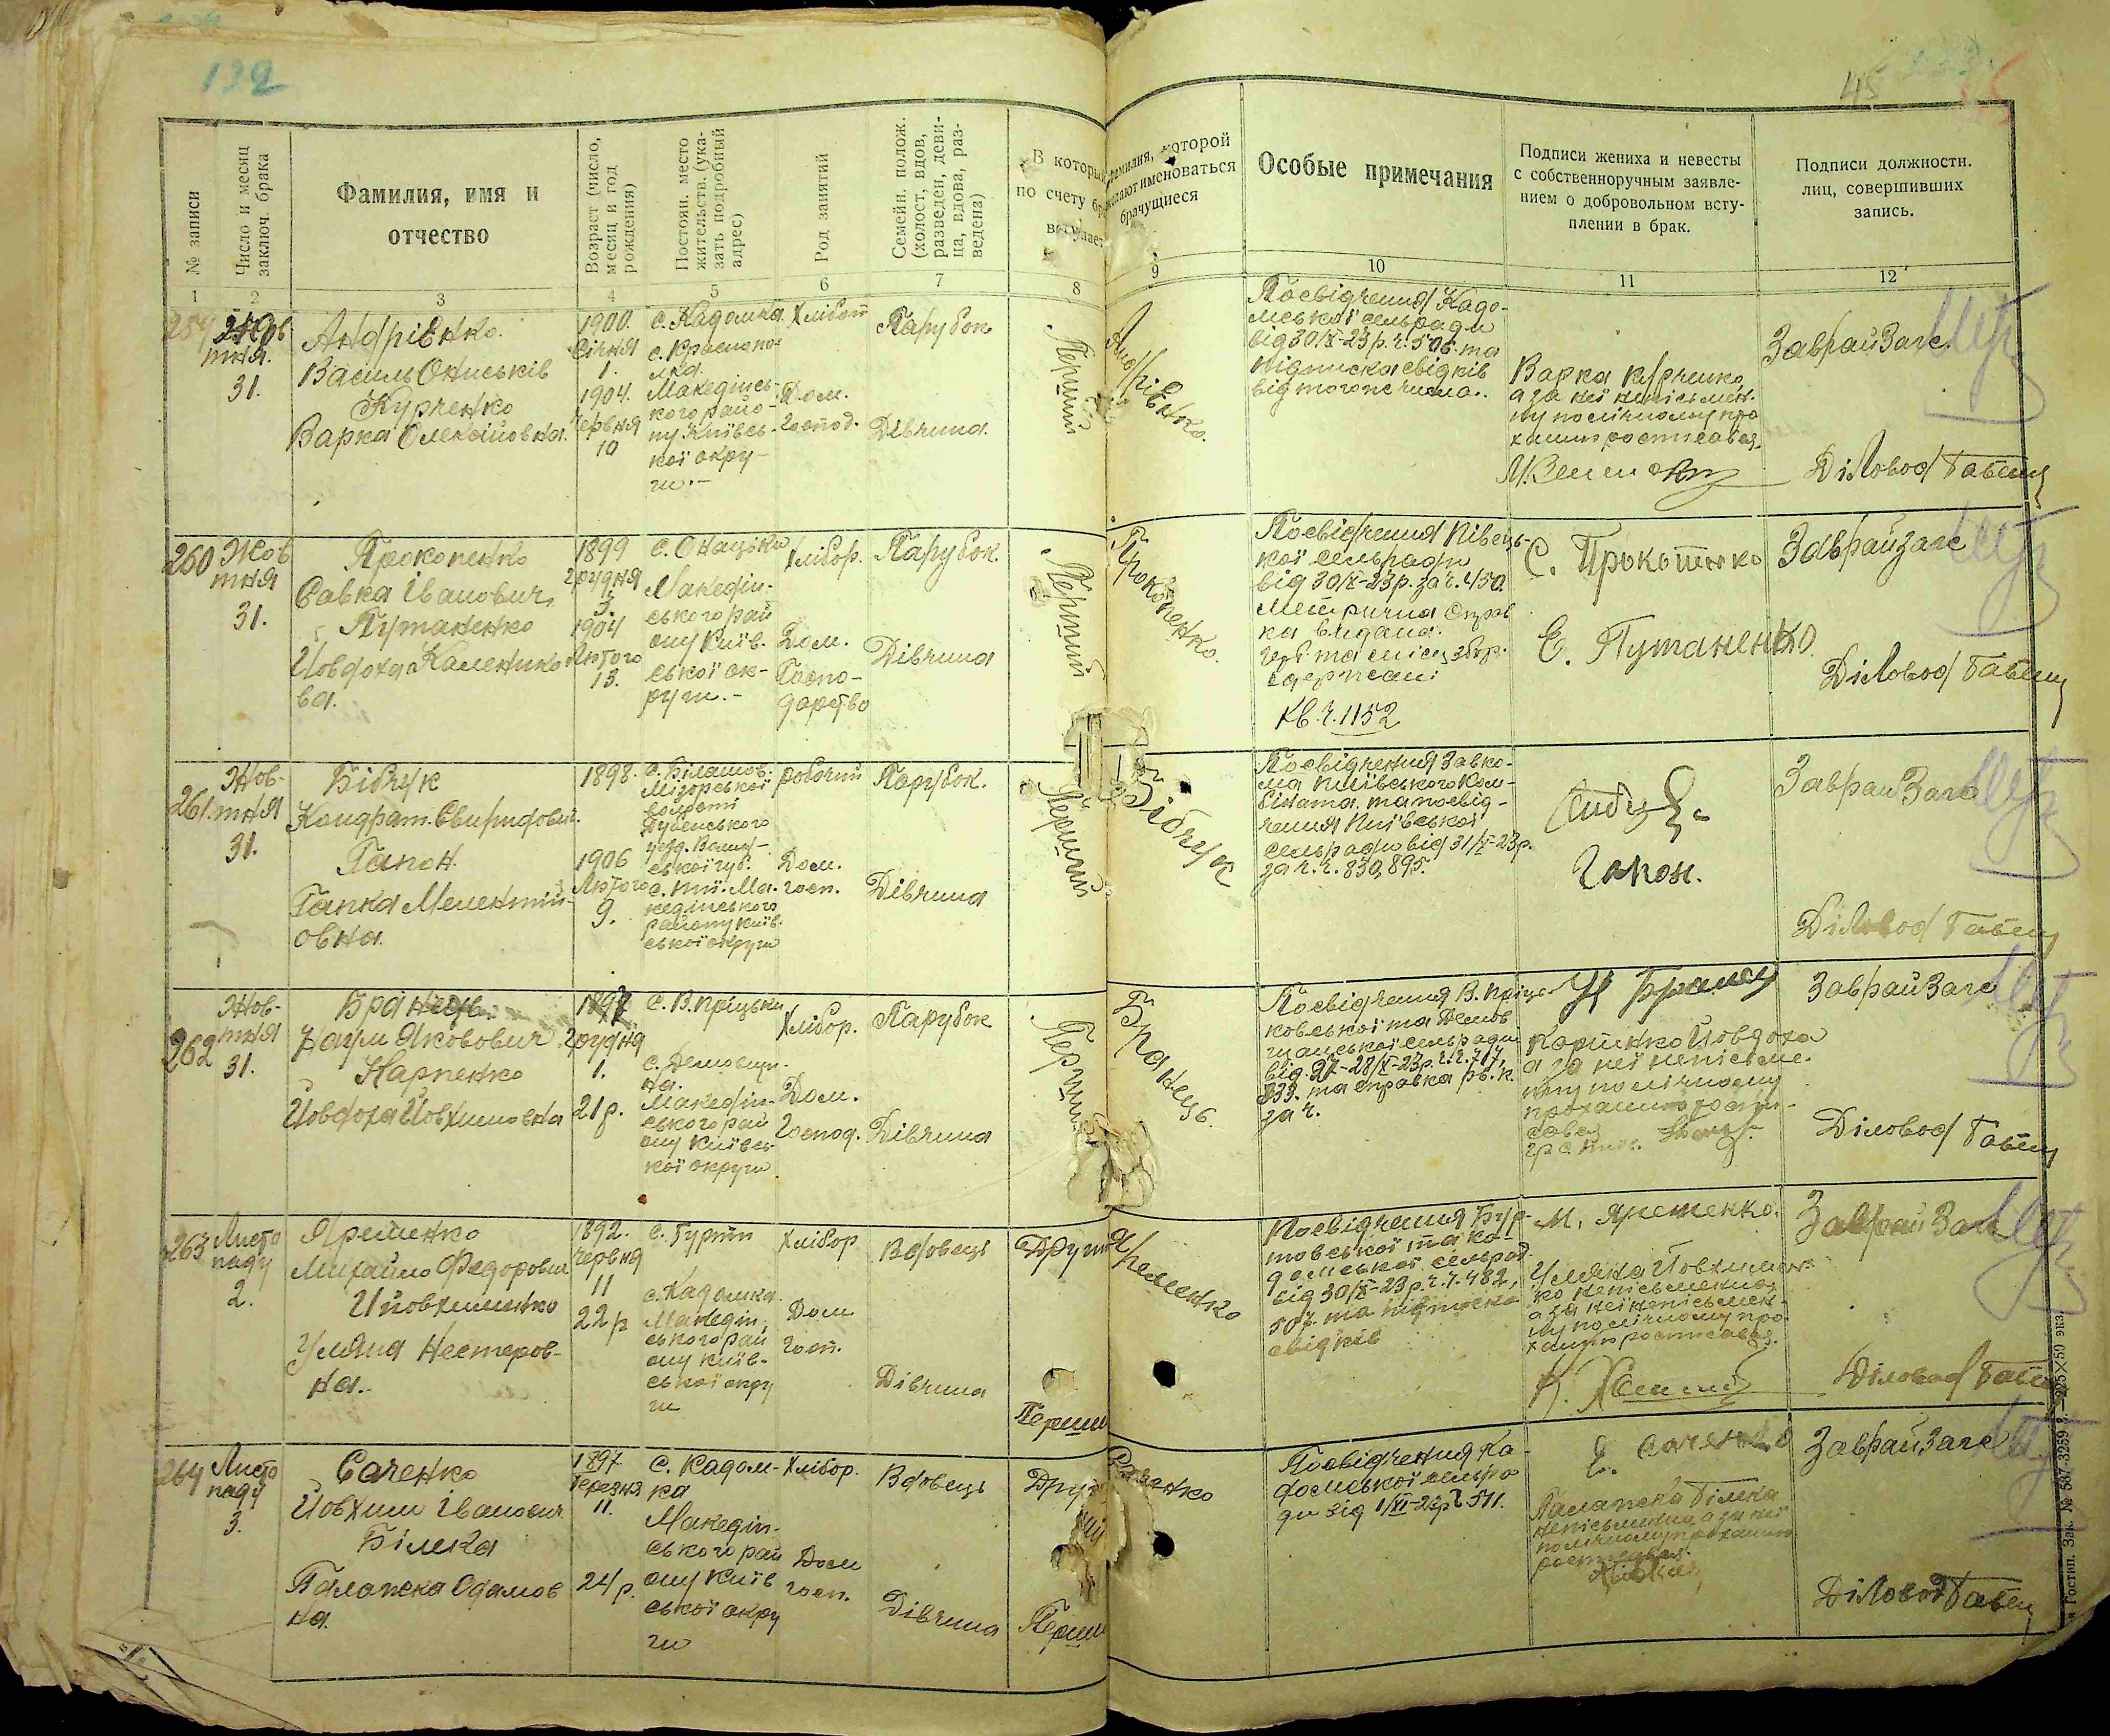 132
45
№ записи
Число и месяц заключ. брака
Фамилия, имя и
отчество
Возраст (число, месяц и год рождения)
Постоян. место жительств. (указать подробный адрес)
Род занятий
Семейн. полож. (холост, вдов, разведен, девица, вдова, разведена)
В который
по счету
вступает
Фамилия, которой
желают именоваться
брачущиеся
Особые примечания
Подписи жениха и невесты
с собственноручным заявле-
нием о добровольном всту-
плении в брак.
Подписи должностн.
лиц, совершивших
запись.
1 2 3 4 5 6 7 8 9 10 11 12
259
Жов
тня.
31.
Андрієнко.
Василь Ониськів
Курченко
Варка Олексійовна.
1900.
Січня
1.
1904.
Червня
10
с. Кадомка
Македінсь-
кого райо-
ну Київсь-
кої окру-
ги.-
Хлібор
Дом.
Господ.
Парубок
Дівчина.
Перший
Андрієнко.
Посвідчення Кадо-
мської сельради
від 30/X-23р. ч. 506. та
підписка свідків
від того же числа.
Варка Курченко,
а за неї неписьмен.
ну по личному про
ханню росписався.
ЗаврайЗагс
Діловод
260
Жов
тня
31.
Прокопенко
Савка Іванович
Путаненко
Йовдоха Каленико
ва.
1899
грудня
3.
1904
Лютого
13.
с. Онацьки
Македін-
ського рай
ону Київ-
ської ок-
руги.-
Хлібор.
Дом.
Госпо-
дарство
Парубок.
Дівчина
Перший
Прокопенко.
Посвідчення Півець-
кої сельради
від 30/X-23р. за ч. 450.
Метрична Справ
ка видана.
Кв. ч. 1152
С. Прокопенко
Е. Путаненко.
ЗаврайЗагс
Діловод
261.
Жов-
тня
31.
Бібчук
Кондрат Свиридович.
Гапон.
Гапка Мелентий-
овна.
1898.
1906
Лютого
9.
Дубенського
уезд. Волин-
ської губ.
кединського
району Київ-
ської округи
робочий
Дом.
госп.
Парубок.
Дівчина
Перший
Бібчук
Посвідчення Завко-
ма Київського Ком-
біната. та посвід-
чення Київської
сельради від 31/X-23р.
за ч. ч. 830, 895.
Гапон.
ЗаврайЗагс
Діловод
262
Жов-
тня
31.
Бранець.
Наум Якович
Карпенко
Йовдоха Йовхимовна
1897
Грудня
1.
21 р.
с. В. Пріцьки
Македін-
ського рай
ону Київсь
кої округи
Хлібор.
Дом.
Господ.
Парубок
Дівчина
Перший
Бранець.
Посвідчення В. Пріць-
ковської та Демов
щанської сельради
за ч.
Карпенко Йовдоха
а за неї неписьме.
ну по личному
ЗаврайЗагс
Діловод
263
Листо
паду
2.
Яременко
Михайло Федорович
Йовхименко
Уляна Нестеров-
на.
1892.
Червня
11
22 р
с. Гурти
с. Кадомка.
Македін
ського рай
ону Київ-
ської окру
ги
Хлібор
Дом
Госп.
Вдовець
Дівчина
Другий
Перший
Яременко
Посвідчення Гур-
товської та Ка-
домської сельрад
від 30/X-23р. ч. ч. 482,
507. та підписка
свідків
М. Яременко.
Уляна Йовхимен
ко неписьменна
а за неї неписьмен-
ну по личному про
ханню росписався.
ЗаврайЗагс
Діловод
264
Листо
паду
3.
Саченко
Йовхим Іванович
Білека
Палажка Одамов
на.
1897
Березня
11.
24 р.
с. Кадом-
ка
Македін-
ського рай
ону Київ
ської окру
ги
Хлібор.
Дом
госп.
Вдовець
Дівчина
Другий
Перший
Саченко
Посвідчення Ка-
домської сельра
ди від 1/XI-23р ч. 511.
Палажка Білека
неписьменна, а за неї
по личному проханню
росписався.
ЗаврайЗагс
Діловод
Гостип. Зак. № 587-3259